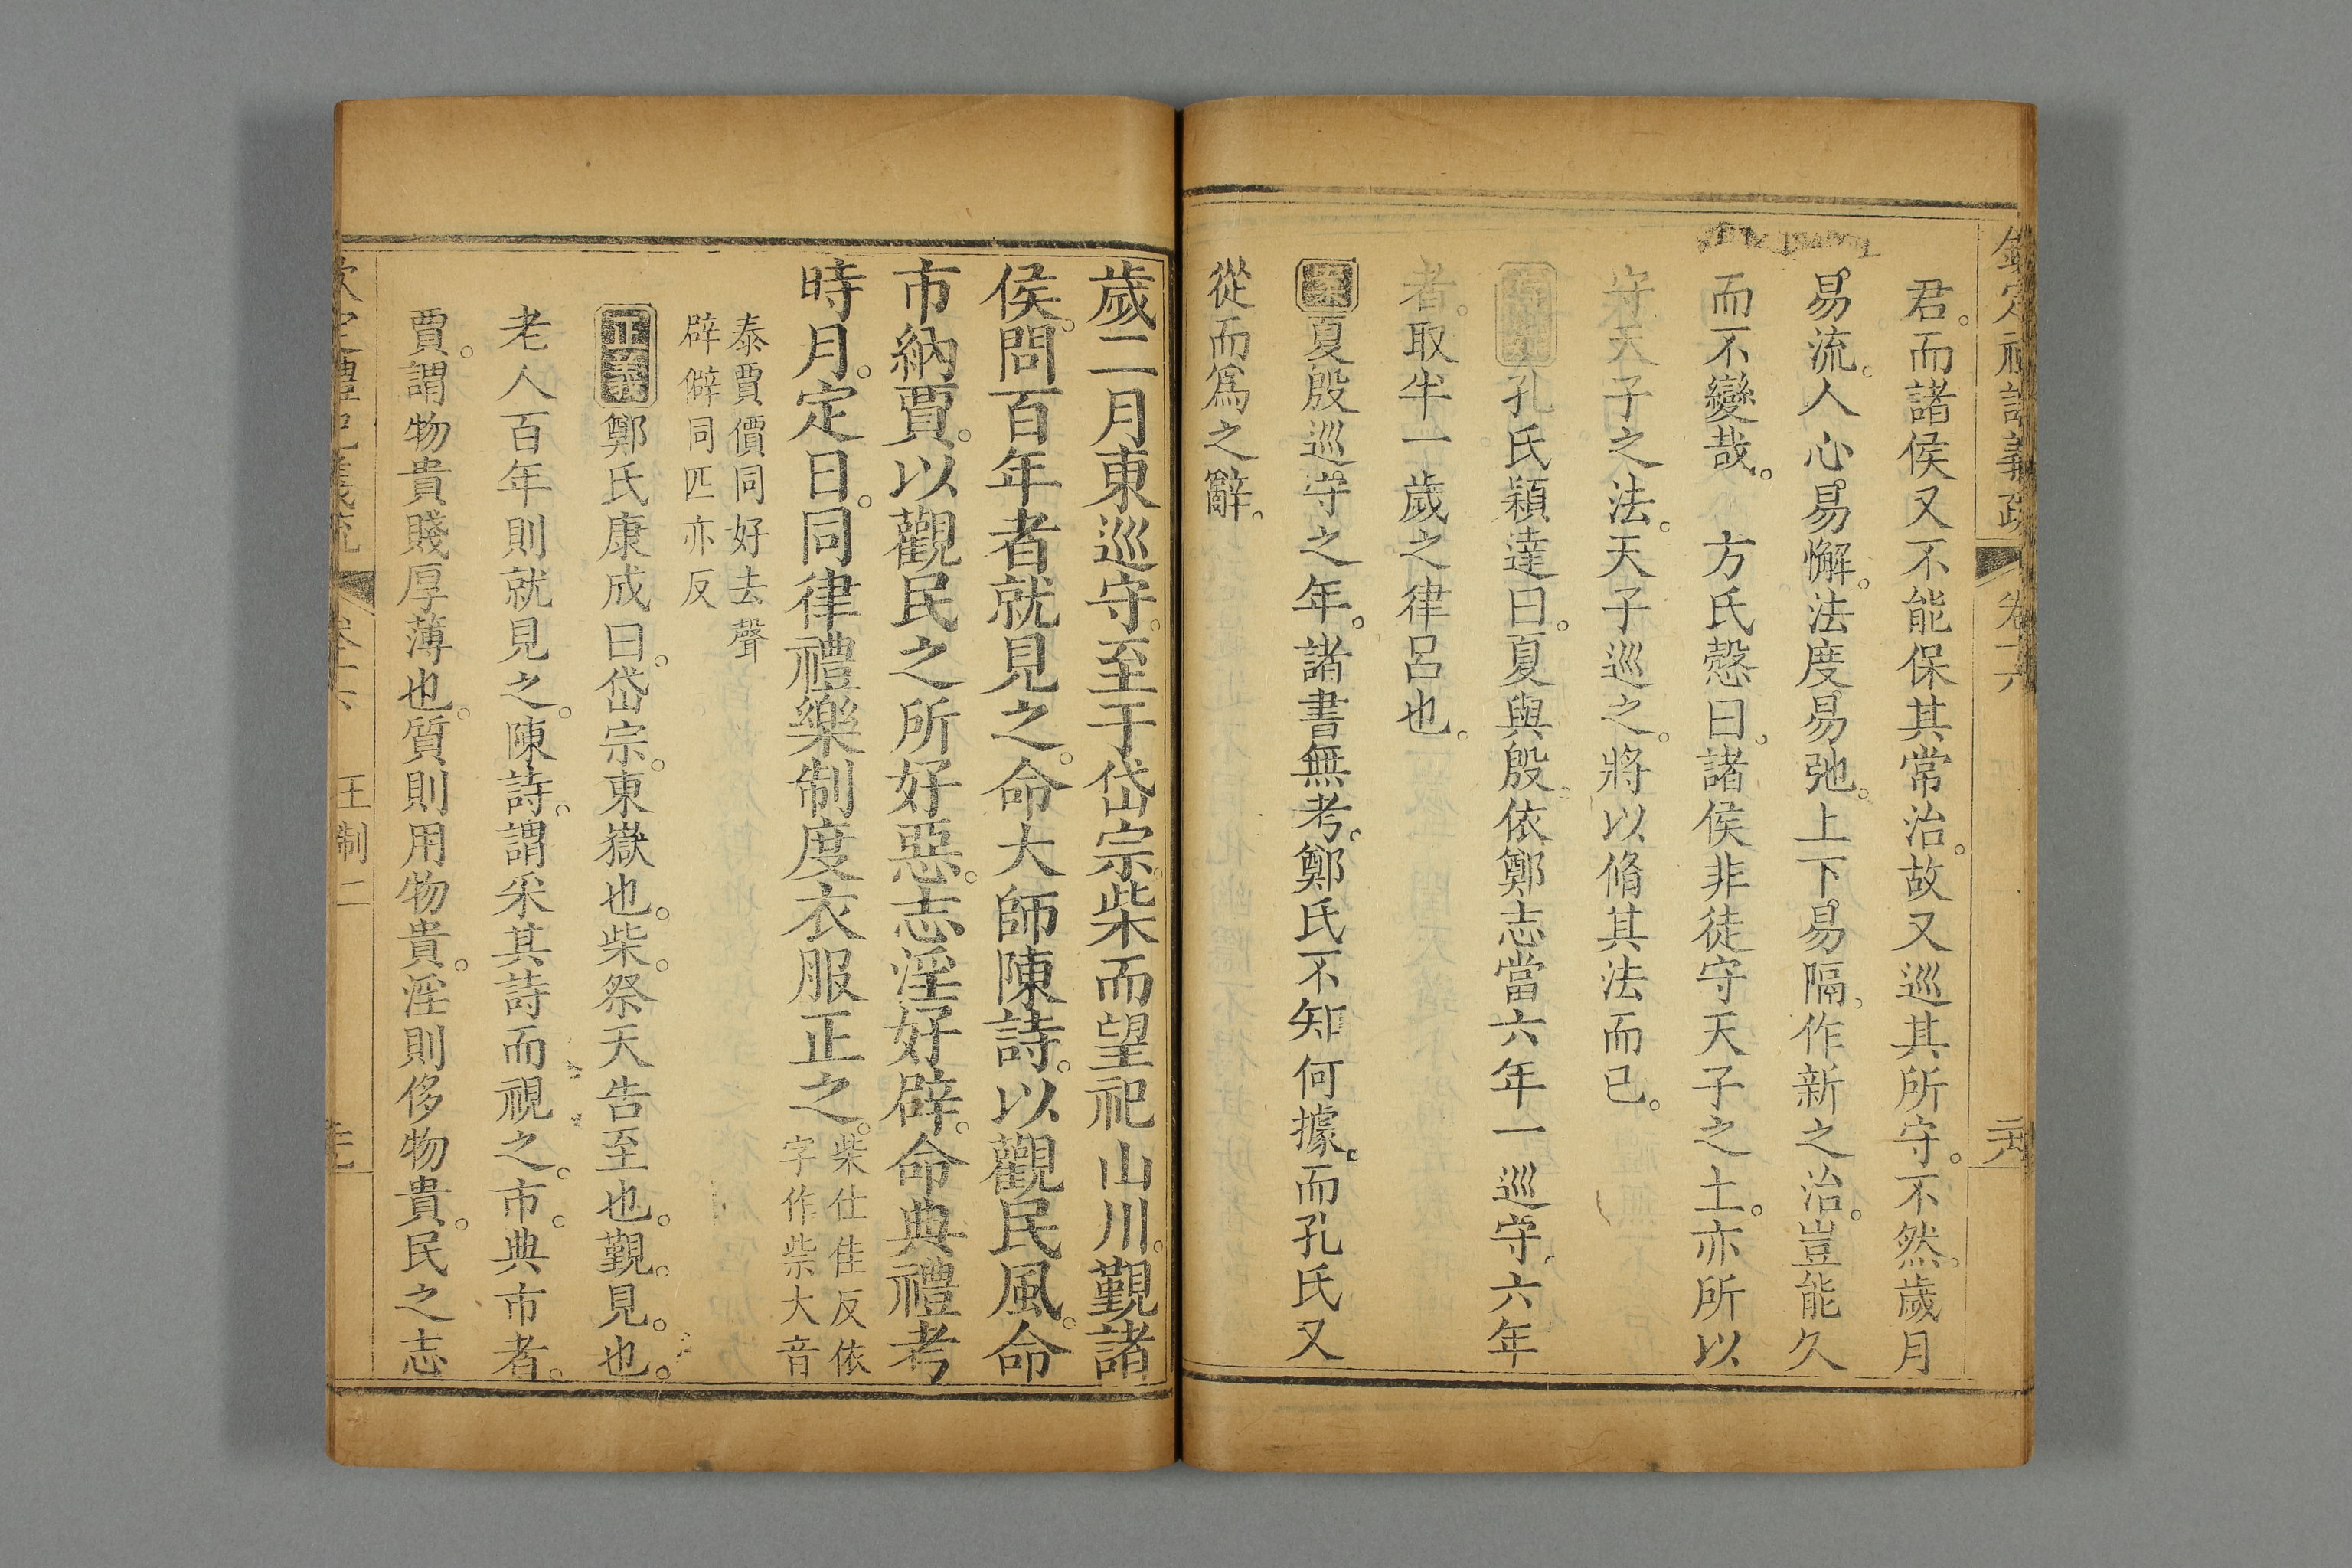 欽定禮記義疏 卷十六
君。而諸侯又不能保其常治。故又巡其所守。不然。歲月
易流。人心易懈。法度易弛。上下易隔。作新之治。豈能久
而不變哉。 方氏慤曰。諸侯非徒守天子之土。亦所以
守天子之法。天子巡之。將以脩其法而已。
孔氏穎達曰。夏與殷。依鄭志當六年一巡守。六年
者。取半一歲之律呂也。
案夏殷巡守之年。諸書無考。鄭氏不知何據。而孔氏又
從而爲之辭。
歲二月東巡守。至于岱宗。柴而望祀山川。覲諸
侯。問百年者就見之。命大師陳詩。以觀民風。命
市納賈。以觀民之所好惡。志淫好辟。命典禮考
時月。定日。同律禮樂制度衣服正之。柴仕佳反依
字作祡大音
泰賈價同好去聲
辟僻同匹亦反
正義鄭氏康成曰。岱宗。東嶽也。柴。祭天告至也。覲。見。也。
老人百年則就見之。陳詩。謂采其詩而視之。市。典市者。
賈。謂物貴賤厚薄也。質則用物貴。淫則侈物貴。民之志
欽定禮記義疏 卷十六 王制二